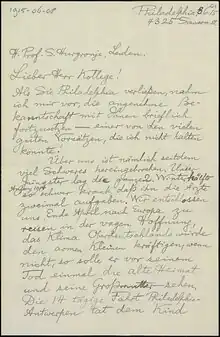 1915-06-08
Philadelphia, Pa.
4325 Sansom St.
H. Prof. S. Hurgronje, Leiden.
Lieber Herr Kollege!
Als Sie Philadelphia verließen, nahm
ich mir vor, die angenehme Be-
kanntschaft mit Ihnen brieflich
fortzusetzen – einer von den vielen
guten Vorsätzen, die ich nicht halten
konnte.
Über uns ist nämlich seitdem
viel Schweres hereingebrochen. Unser
Jüngster der die 2 Winter
so schwer krank daß ihn die Ärzte
zweimal aufgaben. Wir entschlossen
uns Ende April nach Europa zu
reisen in der vagen Hoffnung,
das Klima Oberdeutschlands würde
den armen Kleinen kräftigen; wenn
nicht, so solle er vor seinem
Tod einmal die alte Heimat
und seine Großmutter sehen.
Die 14 tägige Fahrt Philadelphia-
Antwerpen tat dem Kind